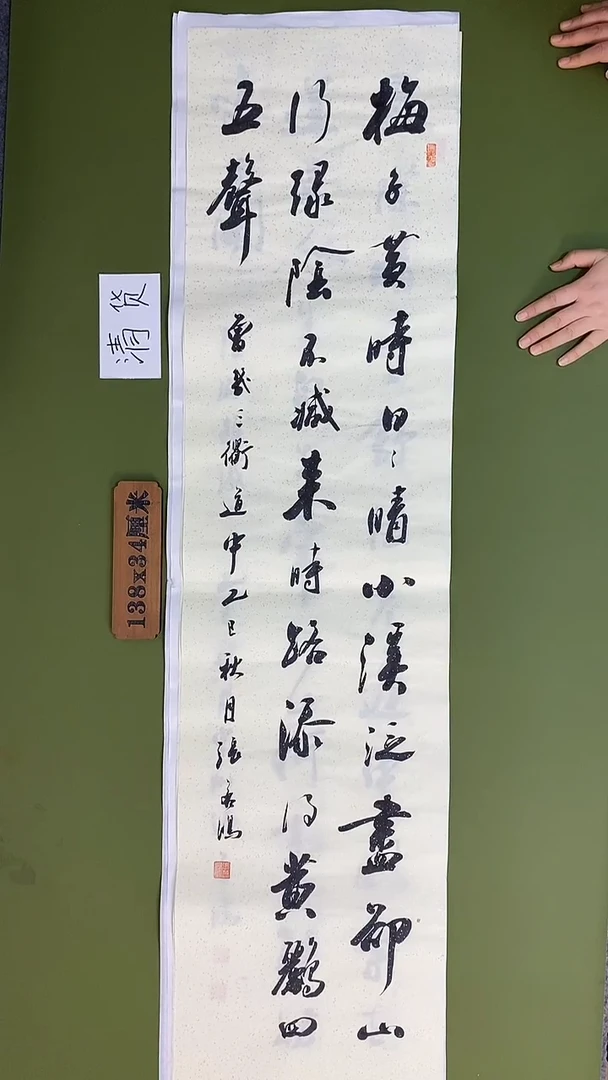 梅子黄時日〻晴小溪泛盡卻山
行緑陰不減来時路添得黄鸝四
五聲
曾幾三衢道中乙巳秋月張
清货
138x34厘米